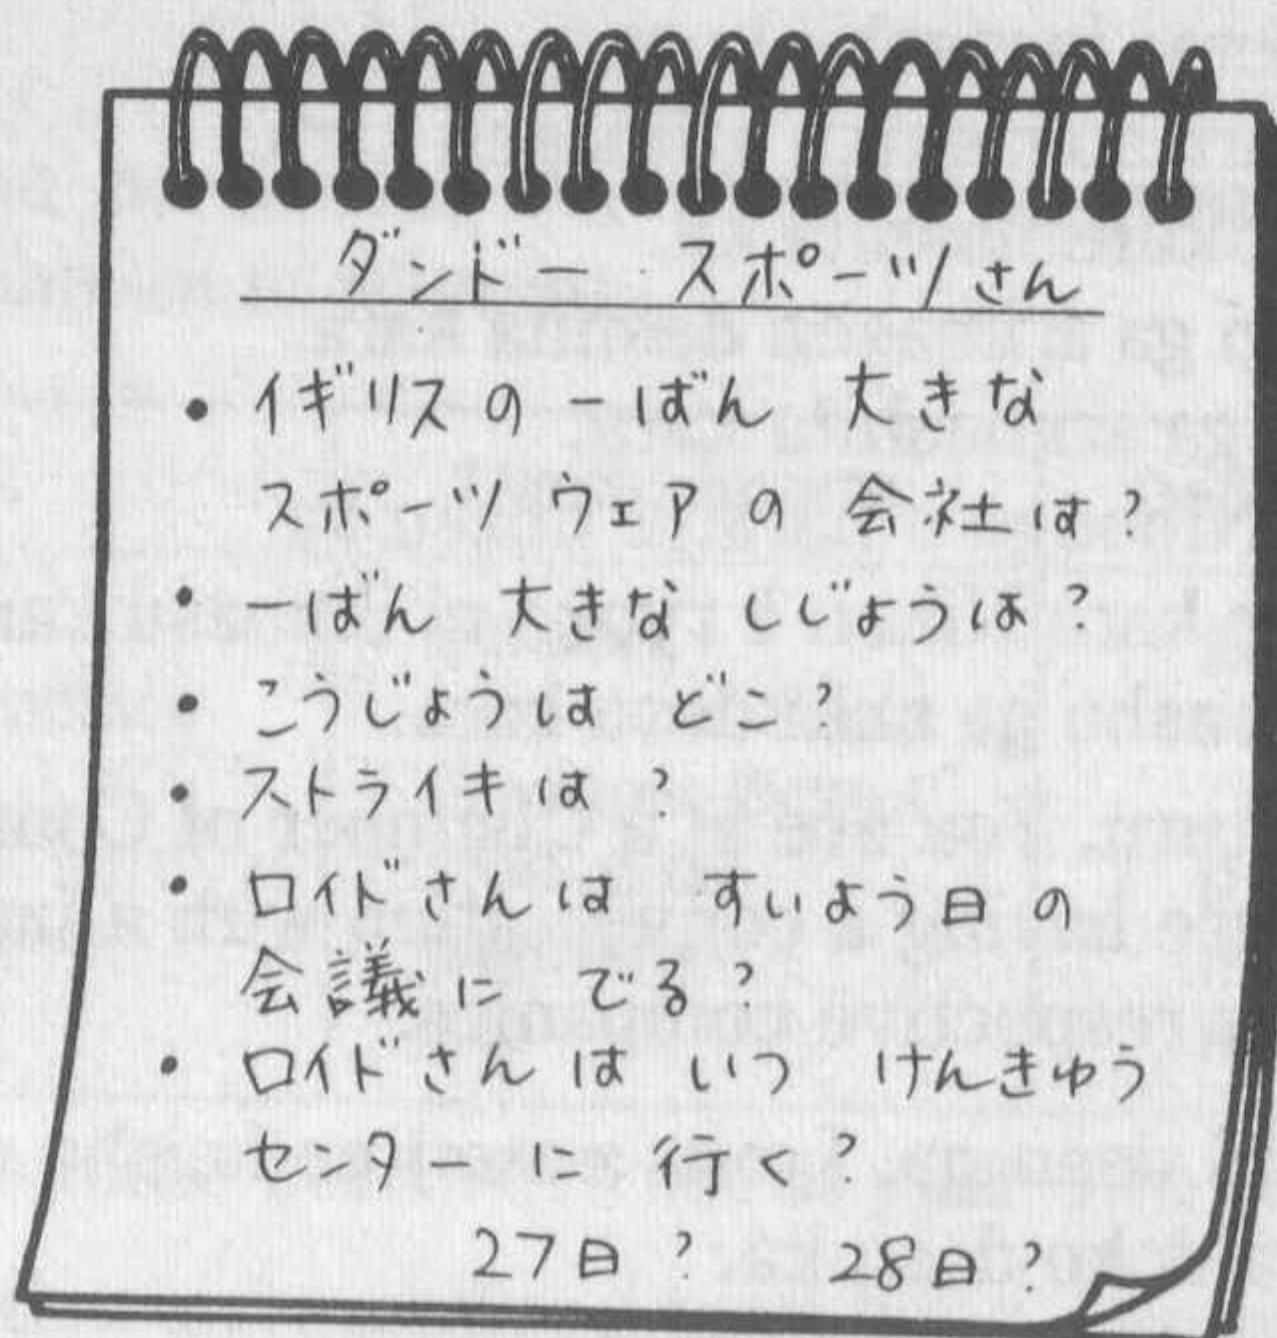 ダンドー スポーツさん
・イギリスの 一ばん 大きな
スポーツウェアの 会社は?
・一ばん 大きな しじょうは?
・こうじょうは どこ?
・ストライキは?
・ロイドさんは すいよう日の
会議に でる?
・ロイドさんは いつ けんきゅう
センターに 行く?
27日? 28日?